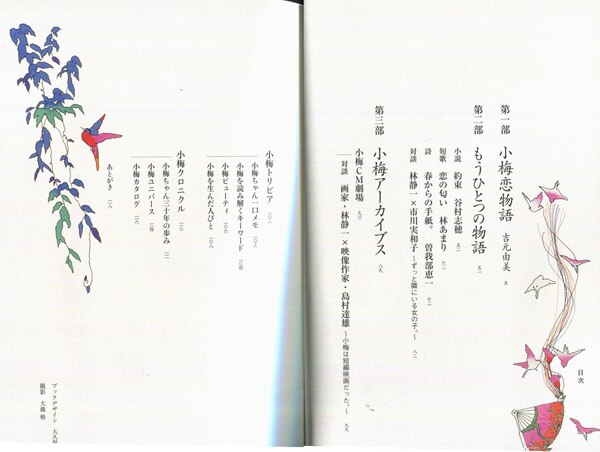 目次
第一部　小梅恋物語　吉元由美　五
第二部　もうひとつの物語　五一
小説　約束　谷村志穂　五二
短歌　恋の匂い　林あまり　六二
詩　春からの手紙。　曽我部恵一　七二
対談　林静一×市川実和子　～ずっと隣にいる女の子。～　八二
第三部　小梅アーカイブス　八九
小梅CM劇場　九〇
対談　画家・林静一×映像作家・島村達雄　～小梅は短編映画だった。～　九九
小梅トリビア　一〇三
小梅ちゃん一口メモ　一〇四
小梅を読み解くキーワード
小梅ビューティ
小梅を生んだ人びと　一〇八
小梅クロニクル　一一〇
小梅ちゃん三十年の歩み
小梅ユニバース
小梅カタログ
あとがき
ブックデザイン
撮影　大畠　格